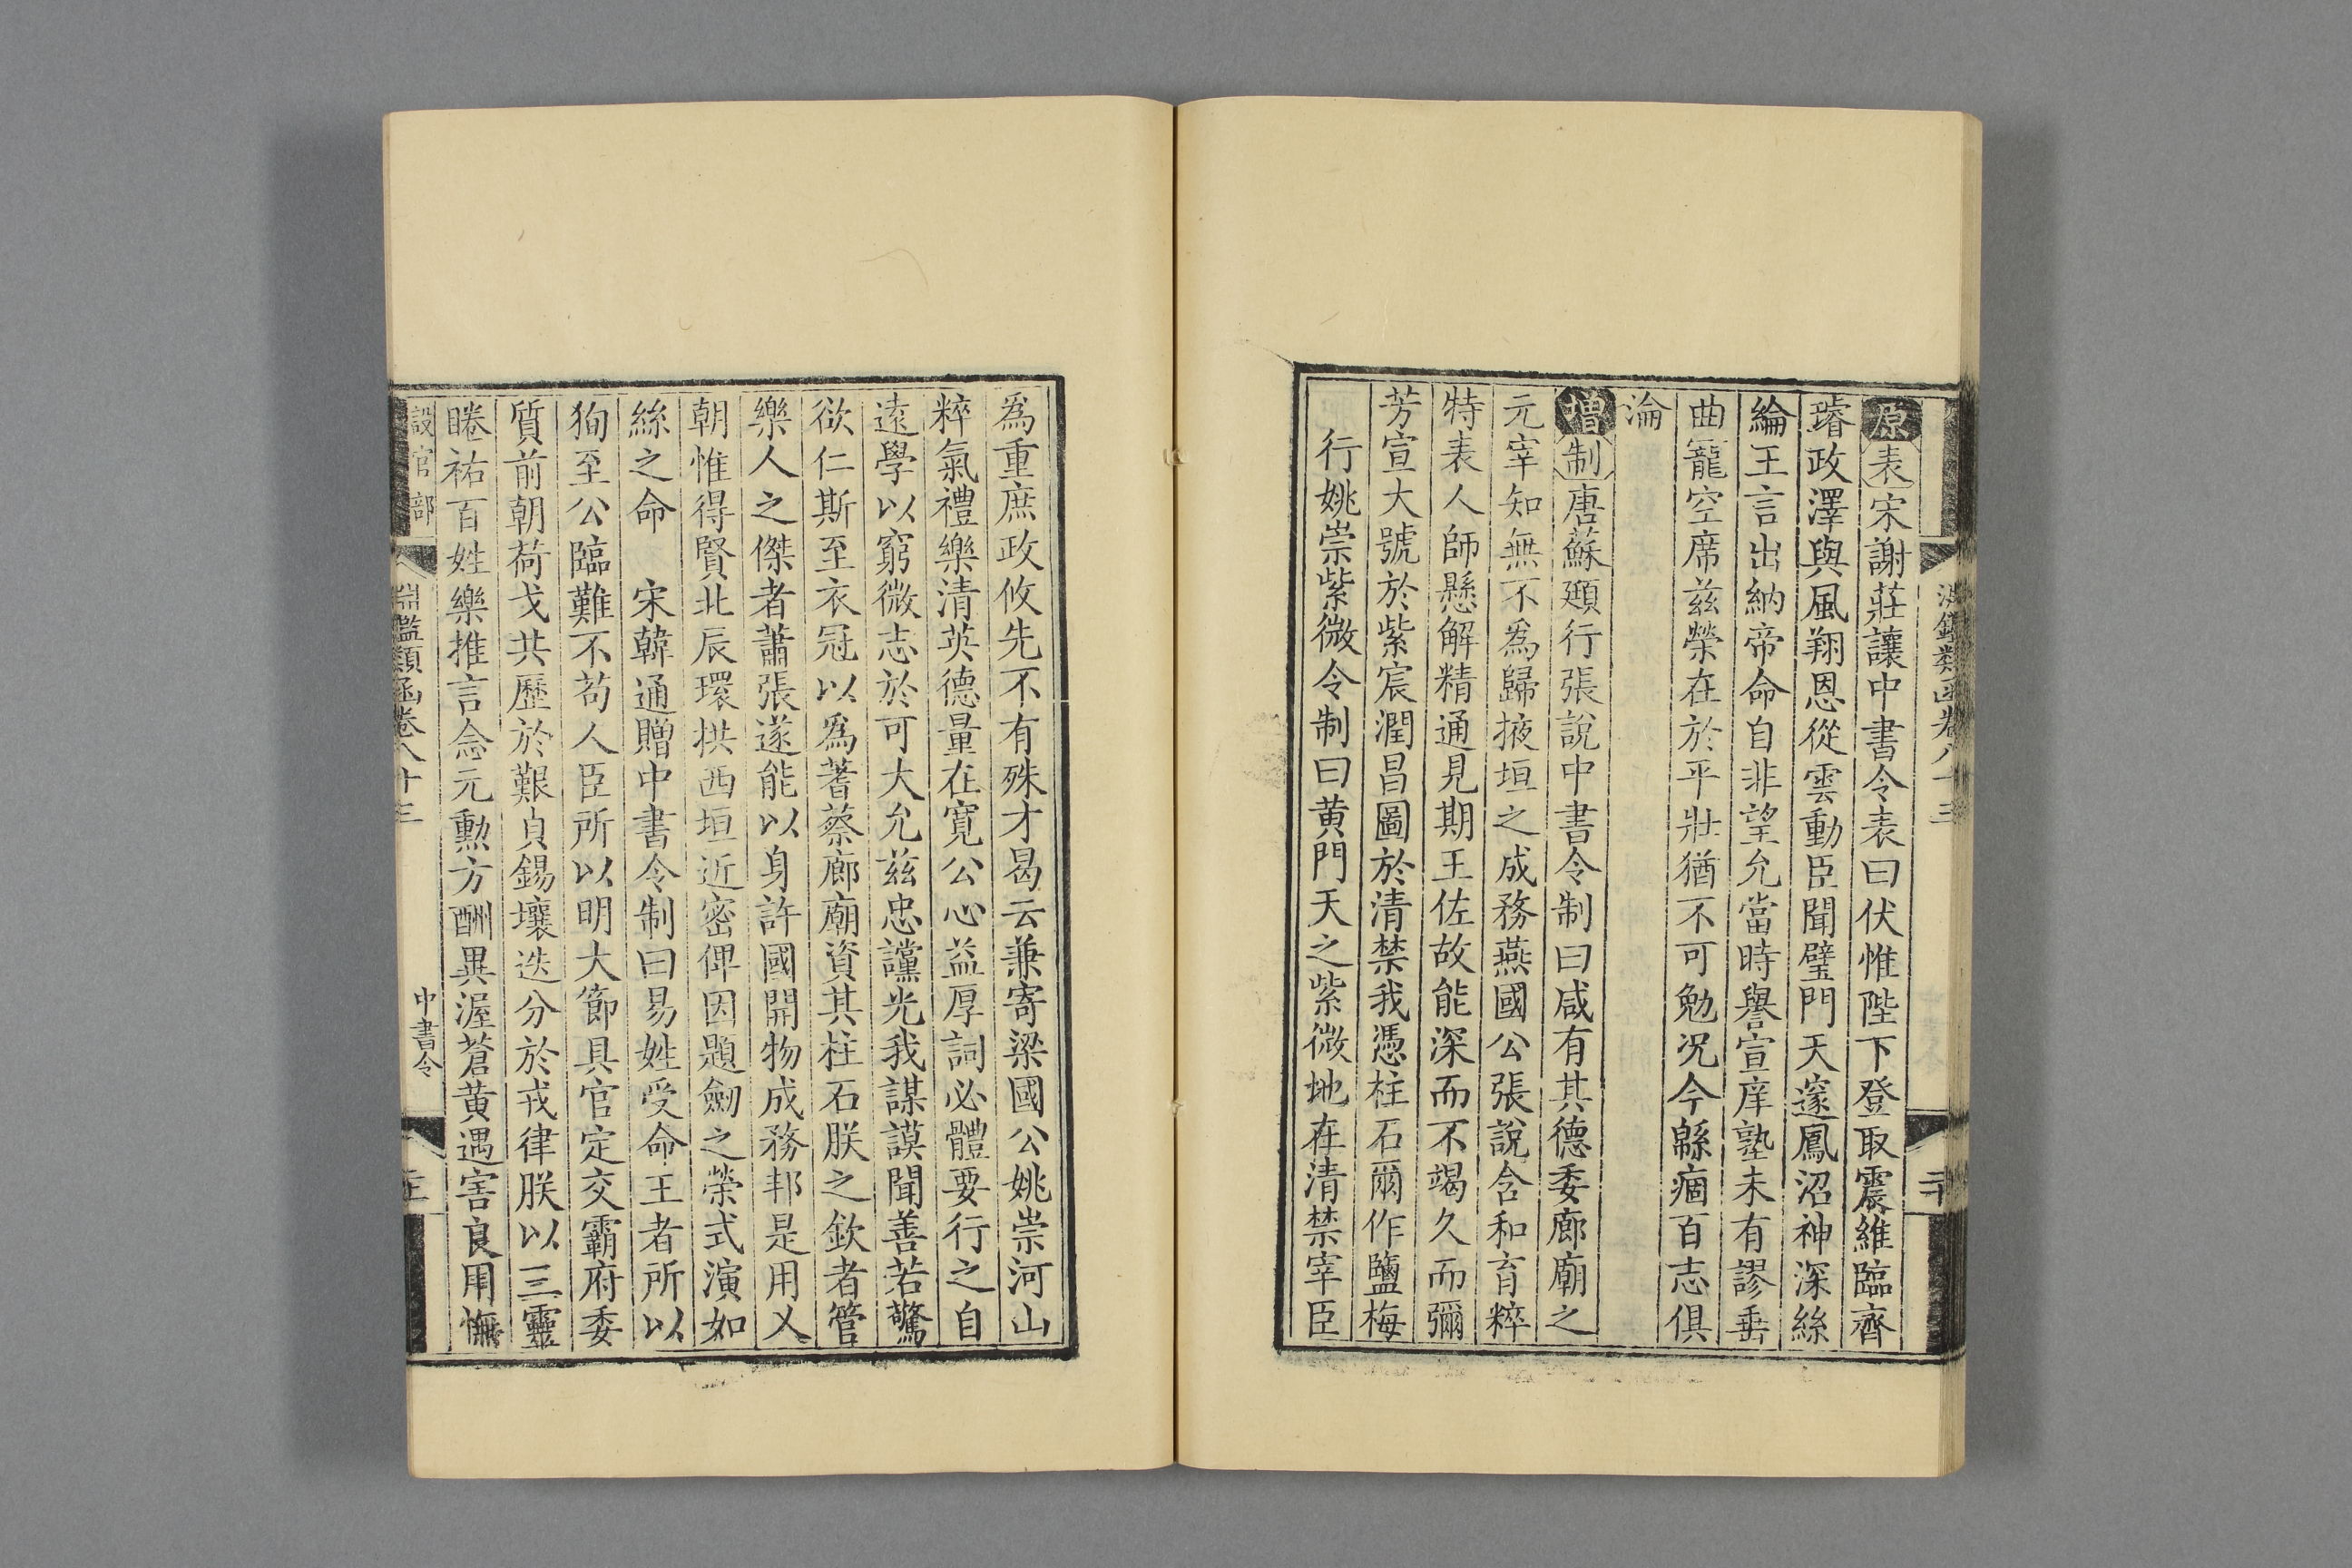 淵鑑類函卷八十三
二十
原表宋謝莊讓中書令表曰伏惟陛下登取震維臨齊
璿政澤與風翔恩從雲動臣聞璧門天邃鳳沼神深絲
綸王言出納帝命自非望允當時譽宣庠塾未有謬垂
曲寵空席兹榮在於平壯猶不可勉况今緜痼百志俱
淪
增制唐蘇頲行張說中書令制曰咸有其德委廊廟之
元宰知無不爲歸掖垣之成務燕國公張說含和育粹
特表人師懸解精通見期王佐故能深而不竭久而彌
芳宣大號於紫宸潤昌圖於清禁我憑柱石爾作鹽梅
行姚崇紫微令制曰黄門天之紫微地在清禁宰臣
爲重庶政攸先不有殊才曷云兼寄梁國公姚崇河山
粹氣禮樂清英德量在寬公心益厚詞必體要行之自
遠學以窮微志於可大允兹忠讜光我謀謨聞善若驚
欲仁斯至衣冠以爲蓍蔡廊廟資其柱石朕之欽者管
樂人之傑者蕭張遂能以身許國開物成務邦是用乂
朝惟得賢北辰環拱西垣近密俾因題劒之榮式演如
絲之命　宋韓通贈中書令制曰易姓受命王者所以
狥至公臨難不苟人臣所以明大節具官定交霸府委
質前朝荷戈共歷於艱貞錫壤迭分於戎律朕以三靈
睠祐百姓樂推言念元勲方酬異渥蒼黄遇害良用憮
設官部
淵鑑類函卷八十三
中書令